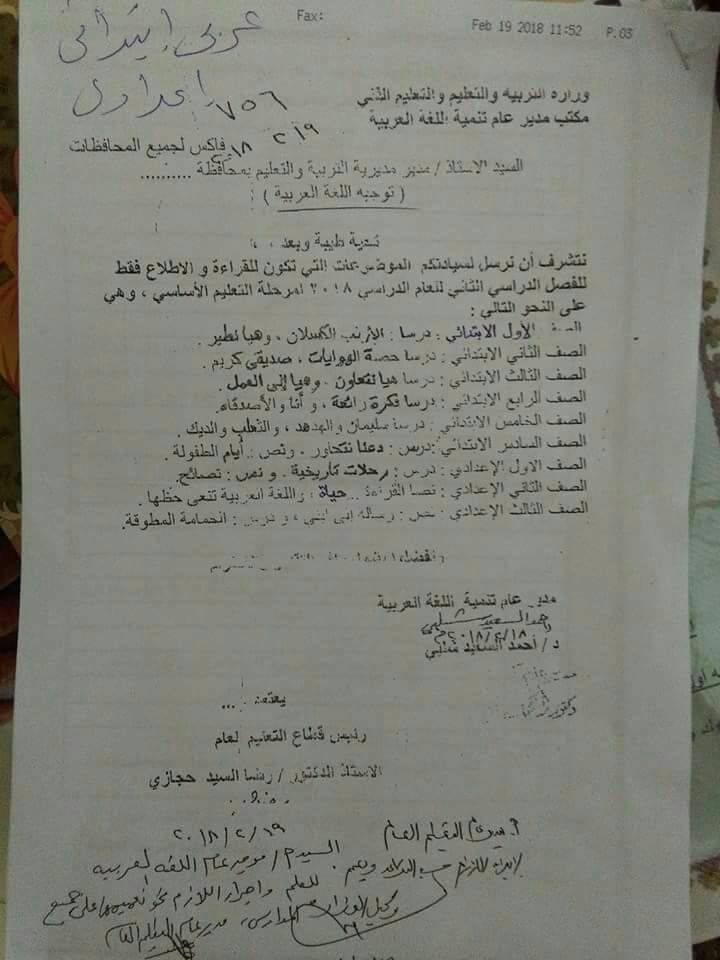 Fax:
Feb 19 2018 11:52
P.03
عربى ابتدائى
إعدادى
٧٥٦
وزاره التربيه والتعليم والتعليم الفني
مكتب مدير عام تنمية اللغة العربية
٢/١٩
فاكس لجميع المحافظات
السيد الاستاذ / مدير مديرية التربية والتعليم بمحافظة ..........
( توجيه اللغة العربية )
تحية طيبة وبعد ، ،
نتشرف أن نرسل لسيادتكم الموضوعات التي تكون للقراءة و الاطلاع فقط
للفصل الدراسي الثاني للعام الدراسي ٢٠١٨ لمرحلة التعليم الأساسي ، وهي
على النحو التالي :
الصف الأول الابتدائي : درسا : الأرنب الكسلان ، وهيا نطير .
الصف الثاني الابتدائي : درسا حصة الهوايات ، صديقي كريم .
الصف الثالث الابتدائي : درسا هيا نتعاون ، وهيا إلى العمل .
الصف الرابع الابتدائي : درسا فكرة رائعة ، و أنا والأصدقاء.
الصف الخامس الابتدائي : درسا سليمان والهدهد ، والثعلب والديك .
الصف السادس الابتدائي : درس : دعنا نتحاور . ونص : أيام الطفولة .
الصف الاول الإعدادي : درس : رحلات تاريخية . و نص : نصائح.
الصف الثاني الإعدادي : نصا القراءة .. حياة ، واللغة العربية تنعى حظها .
الصف الثالث الإعدادي : نص : رسالة إلى ابني ، و درس : الحمامة المطوقة .
مدير عام تنمية اللغة العربية
٢٠١٨/٢/١٨م
د / أحمد السعيد شلبي
يعتمد ...
رئيس قطاع التعليم العام
الاستاذ الدكتور / رضا السيد حجازي
٢٠١٨/٢/١٩
مدير عام التعليم العام
السيد / موجه عام اللغة العربية
للعلم واجراء اللازم نحو تعميمها على جميع
المدارس ، مدير عام التعليم العام